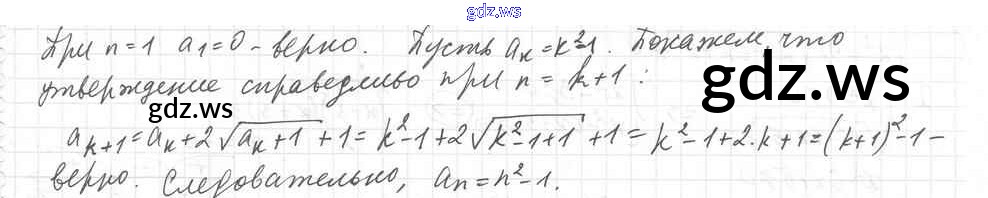 gdz.ws
При n=1 a₁=0 - верно. Пусть aₖ=k²-1. Покажем, что
утверждение справедливо при n=k+1:
gdz.ws
gdz.ws
aₖ₊₁=aₖ+2√(aₖ+1)+1=k²-1+2√(k²-1+1)+1=k²-1+2·k+1=(k+1)²-1-
верно. Следовательно, aₙ=n²-1.